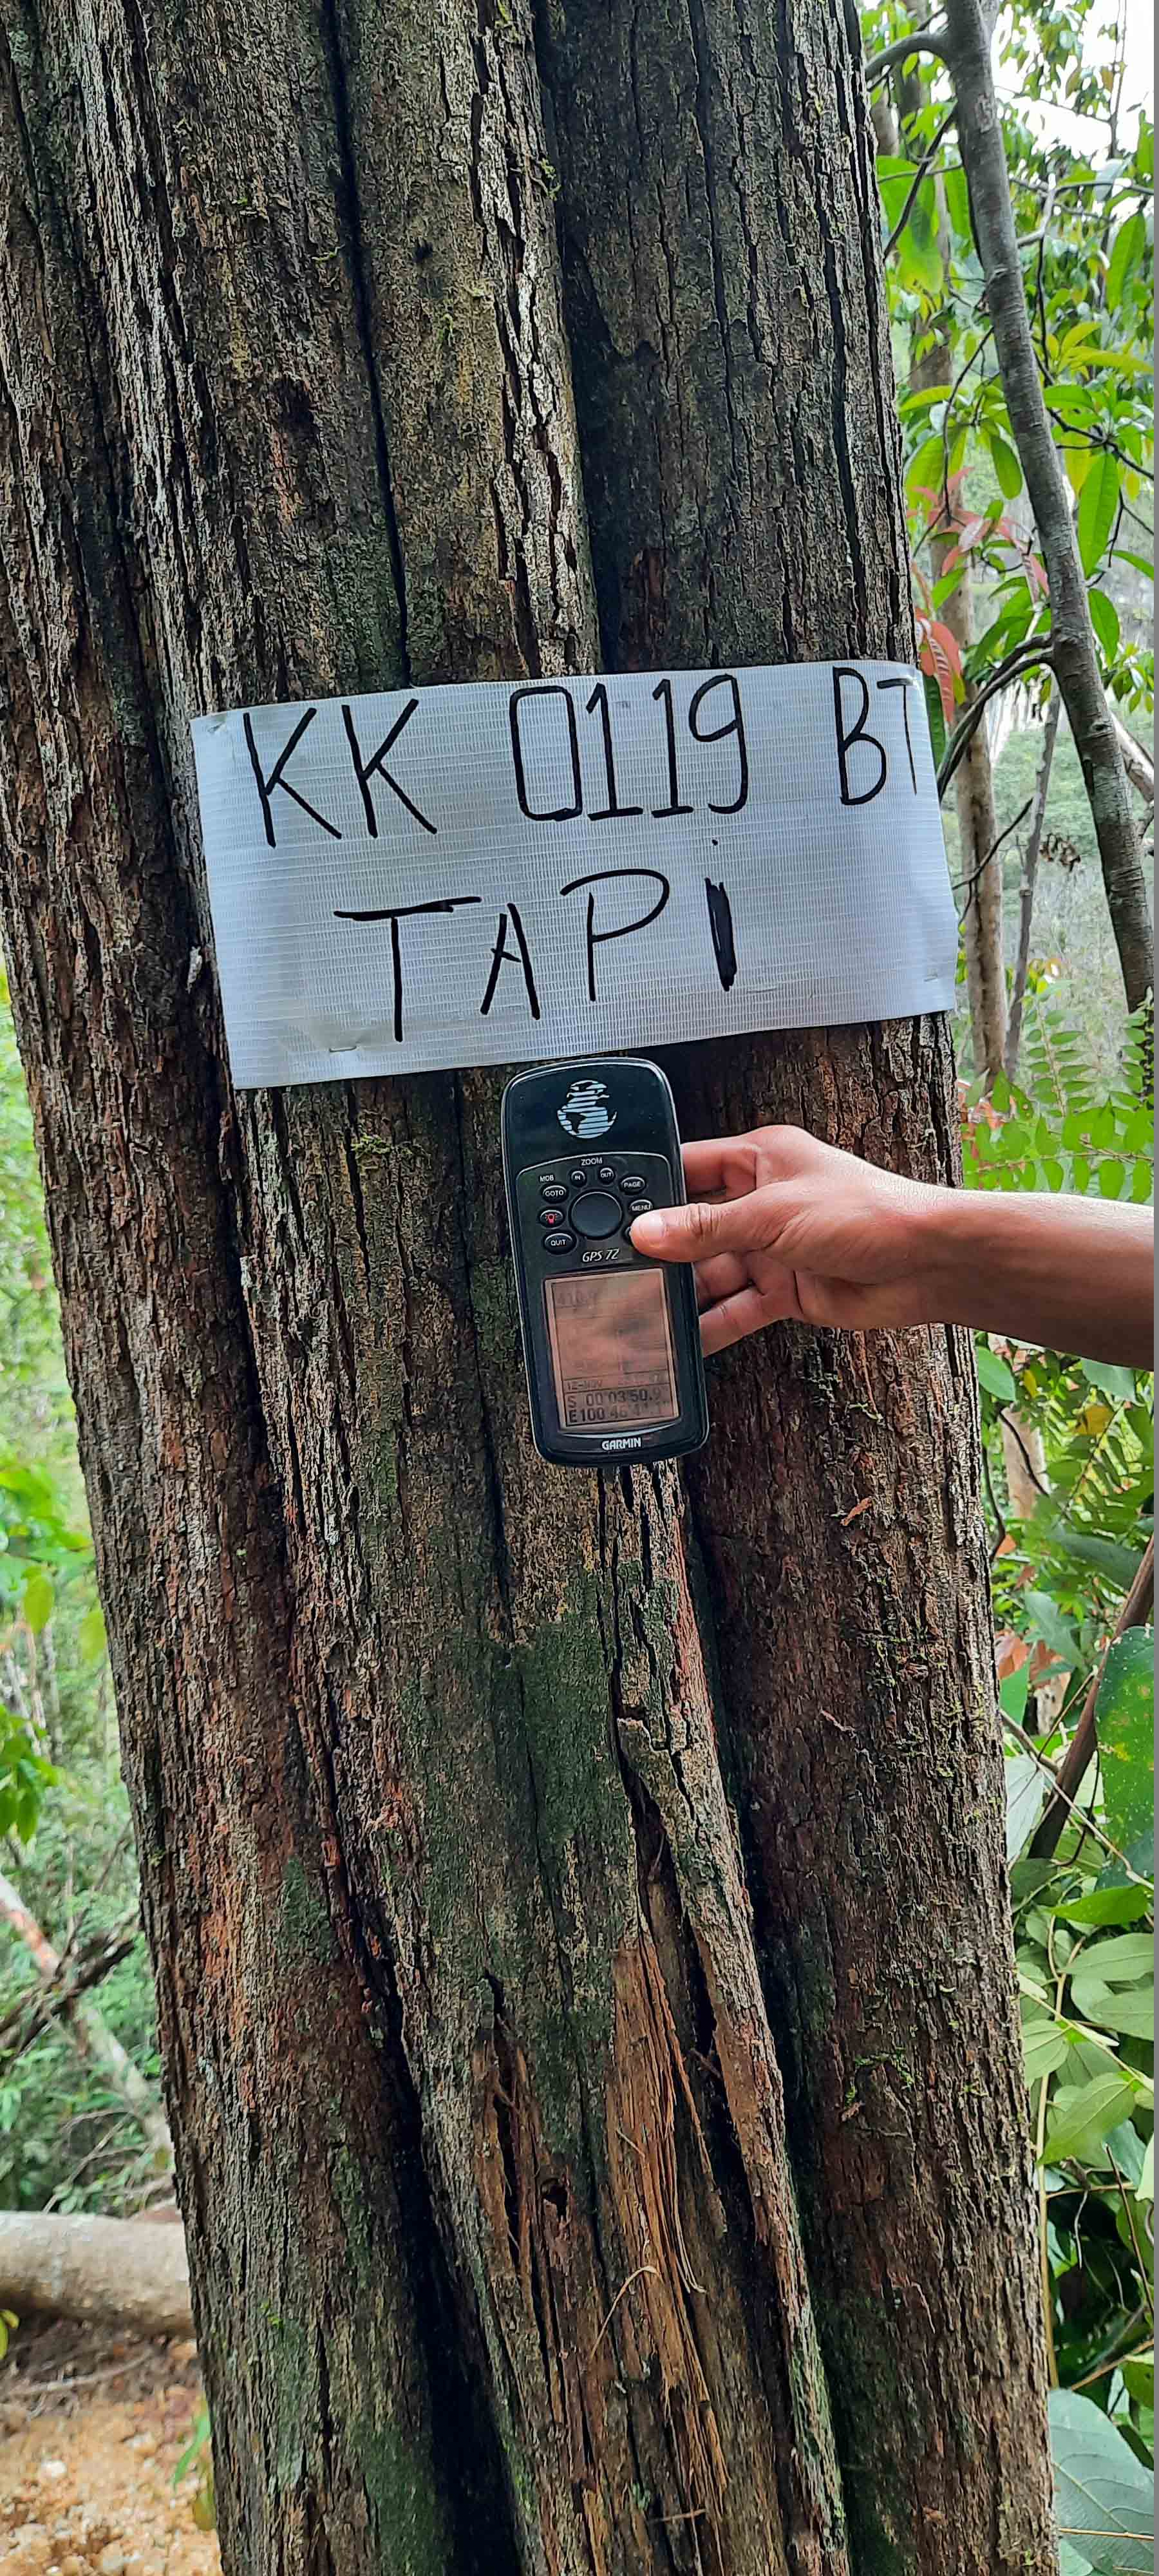 KK 0119 BT
TAPI
ZOOM
MOB IN OUT
GOTO PAGE
MENU
QUIT
GPS 72
S 00°03'50.
E100
GARMIN